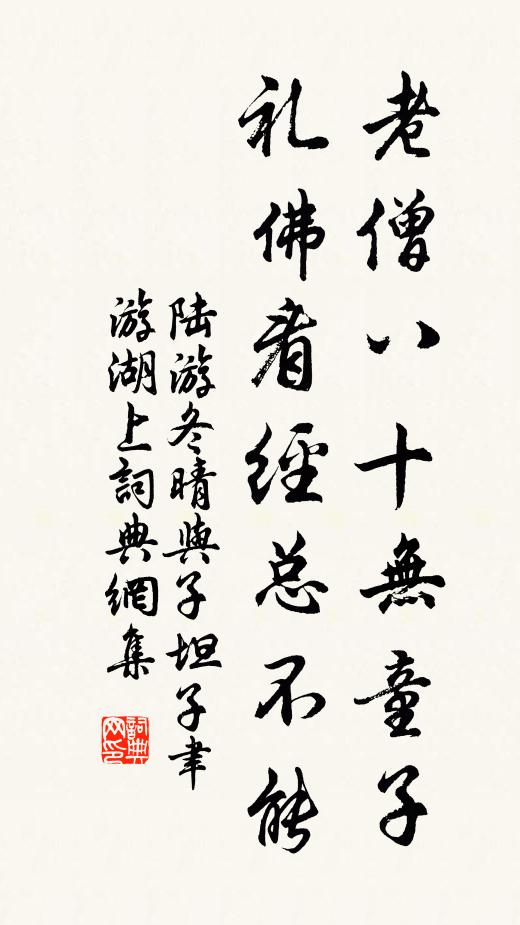 老僧八十無童子
礼佛看經总不能
陆游冬晴與子坦子聿
游湖上詞典網集
詞典网印